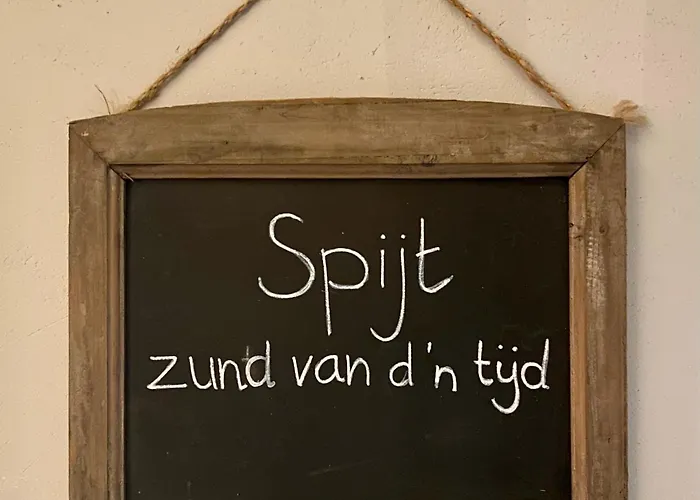 Spijt
zund van d'n tijd